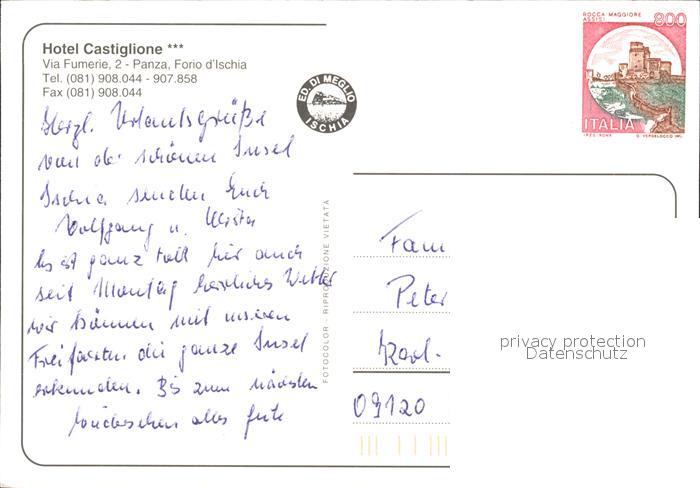 Hotel Castiglione ***
Via Fumerie, 2 - Panza, Forio d'Ischia
Tel. (081) 908.044 - 907.858
Fax (081) 908.044
ED. DI MEGLIO
ISCHIA
ROCCA MAGGIORE
ASSISI
800
ITALIA
Herzl. Urlaubsgrüße
von der schönen Insel
Ischia senden Euch
Wolfgang u.
Es ist ganz toll hier auch
seit Montag herrliches Wetter
wir können mit unseren
Freifahrten die ganze Insel
erkunden. Bis zum nächsten
Wiedersehen alles gute
FOTOCOLOR - RIPRODUZIONE VIETATA
Fam
Peter
Karl-
09120
privacy protection
Datenschutz